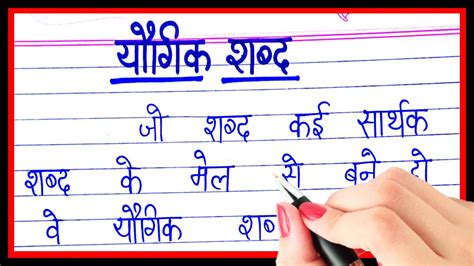 यौगिक शब्द
जो शब्द कई सार्थक
शब्द के मेल से बने हो
वे यौगिक शब्